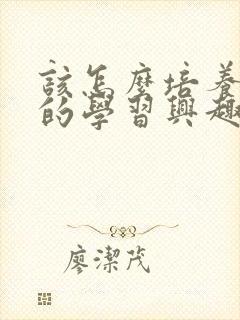 該怎麼培養
的學習興趣
廖潔茂